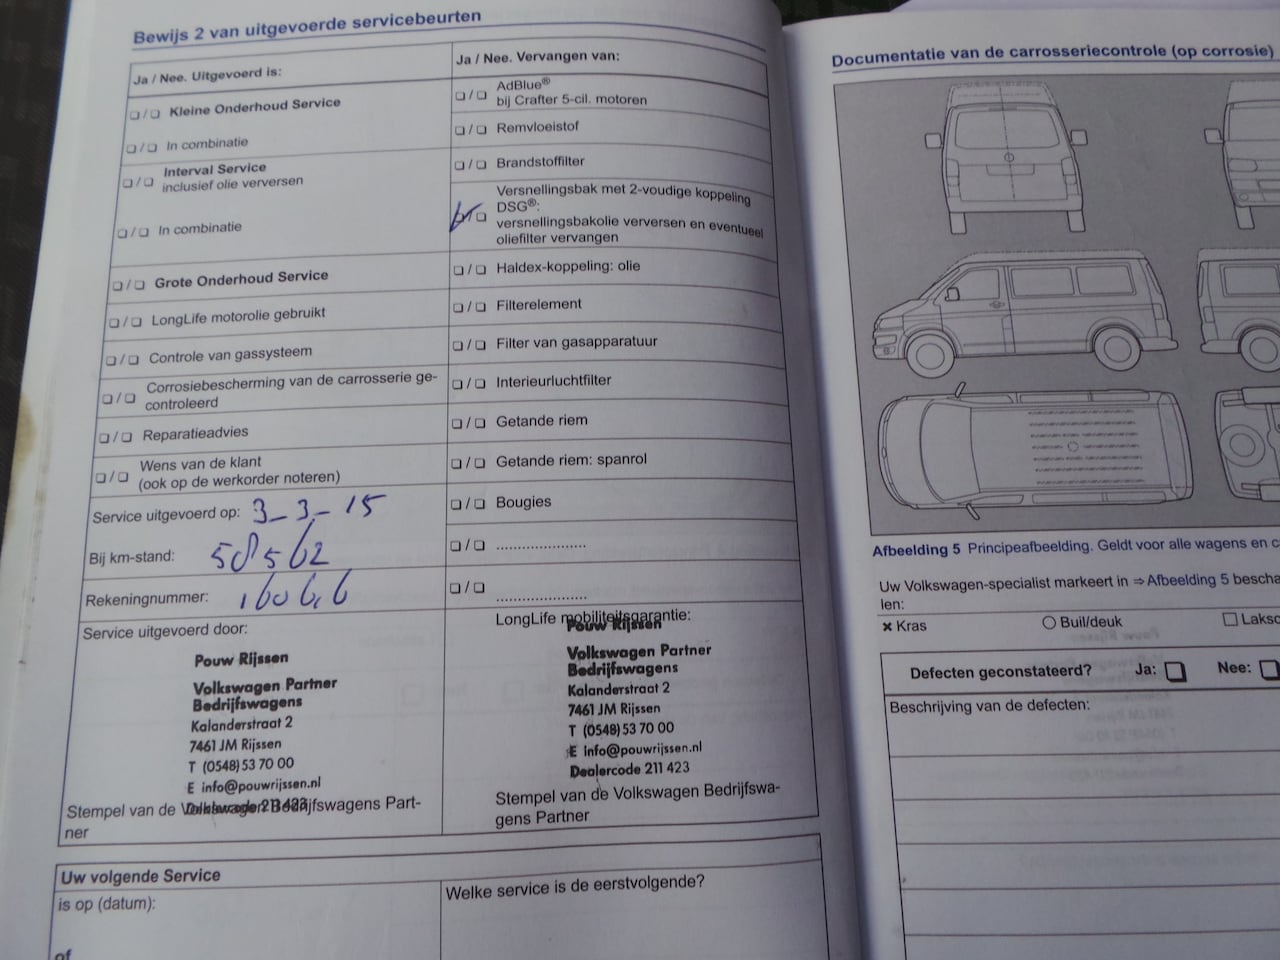 Bewijs 2 van uitgevoerde servicebeurten
Ja / Nee. Uitgevoerd is:
❏ / ❏ Kleine Onderhoud Service
❏ / ❏ In combinatie
❏ / ❏ Interval Service
inclusief olie verversen
❏ / ❏ In combinatie
❏ / ❏ Grote Onderhoud Service
❏ / ❏ LongLife motorolie gebruikt
❏ / ❏ Controle van gassysteem
❏ / ❏ Corrosiebescherming van de carrosserie ge-
controleerd
❏ / ❏ Reparatieadvies
❏ / ❏ Wens van de klant
(ook op de werkorder noteren)
Service uitgevoerd op: 3-3-15
Bij km-stand: 58562
Rekeningnummer:
Service uitgevoerd door:
Pouw Rijssen
Volkswagen Partner
Bedrijfswagens
Kalanderstraat 2
7461 JM Rijssen
T (0548) 53 70 00
E info@pouwrijssen.nl
Dealercode 211 423
Stempel van de Volkswagen Bedrijfswagens Part-
ner
Ja / Nee. Vervangen van:
❏ / ❏ AdBlue®
bij Crafter 5-cil. motoren
❏ / ❏ Remvloeistof
❏ / ❏ Brandstoffilter
Versnellingsbak met 2-voudige koppeling
DSG®:
❏ / ❏ versnellingsbakolie verversen en eventueel
oliefilter vervangen
❏ / ❏ Haldex-koppeling: olie
❏ / ❏ Filterelement
❏ / ❏ Filter van gasapparatuur
❏ / ❏ Interieurluchtfilter
❏ / ❏ Getande riem
❏ / ❏ Getande riem: spanrol
❏ / ❏ Bougies
❏ / ❏ .....................
❏ / ❏ .....................
LongLife mobiliteitsgarantie:
Pouw Rijssen
Volkswagen Partner
Bedrijfswagens
Kalanderstraat 2
7461 JM Rijssen
T (0548) 53 70 00
E info@pouwrijssen.nl
Dealercode 211 423
Stempel van de Volkswagen Bedrijfswa-
gens Partner
Uw volgende Service
is op (datum):
of
Welke service is de eerstvolgende?
Documentatie van de carrosseriecontrole (op corrosie)
Afbeelding 5 Principeafbeelding. Geldt voor alle wagens en
Uw Volkswagen-specialist markeert in ⇒ Afbeelding 5
len:
× Kras ○ Buil/deuk ☐
Defecten geconstateerd? Ja: ❏ Nee: ❏
Beschrijving van de defecten: